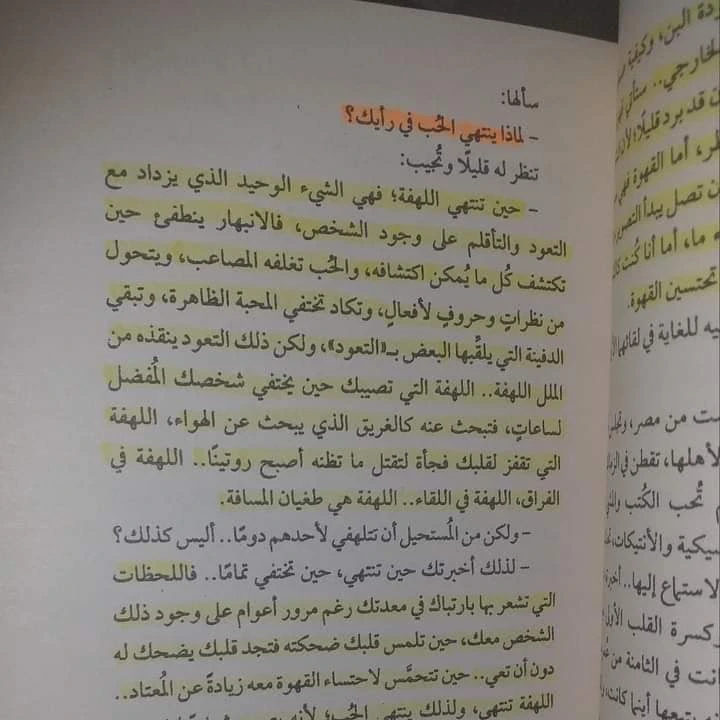 سألها:
– لماذا ينتهي الحُب في رأيك؟
تنظر له قليلًا وتُجيب:
– حين تنتهي اللهفة؛ فهي الشيء الوحيد الذي يزداد مع
التعود والتأقلم على وجود الشخص، فالانبهار ينطفئ حين
تكتشف كُل ما يُمكن اكتشافه، والحُب تغلفه المصاعب، ويتحول
من نظراتٍ وحروفٍ لأفعالٍ، وتكاد تختفي المحبة الظاهرة، وتبقي
الدفينة التي يلقِّبها البعض بـ«التعود»، ولكن ذلك التعود ينقذه من
الملل اللهفة.. اللهفة التي تصيبك حين يختفي شخصك المُفضل
لساعاتٍ، فتبحث عنه كالغريق الذي يبحث عن الهواء، اللهفة
التي تقفز لقلبك فجأة لتقتل ما تظنه أصبح روتينًا.. اللهفة في
الفراق، اللهفة في اللقاء.. اللهفة هي طغيان المسافة.
– ولكن من المُستحيل أن تتلهفي لأحدهم دومًا.. أليس كذلك؟
– لذلك أخبرتك حين تنتهي، حين تختفي تمامًا.. فاللحظات
التي تشعر بها بارتباك في معدتك رغم مرور أعوام على وجود ذلك
الشخص معك، حين تلمس قلبك ضحكته فتجد قلبك يضحك له
دون أن تعي.. حين تتحمَّس لاحتساء القهوة معه زيادةً عن المُعتاد..
اللهفة تنتهي، ولذلك ينتهي الحُب؛ لأنه
ودة البن، وكيفية
لخارجي.. ستأتي
ن قد يبرد قليلًا؛ لأن
ظر، أما القهوة فهي
ن تصل يبدأ
ما، أما أنا كُنت
تحتسين القهوة.
يه للغاية في لقائهما
ست من مصر، وتجلس
لأهلها، تقطن في
تُحب الكُتب
سيكية والأنتيكات،
لاستماع إليها..
كسرة القلب الأولى
انت في الثامنة من
أينما كانت،